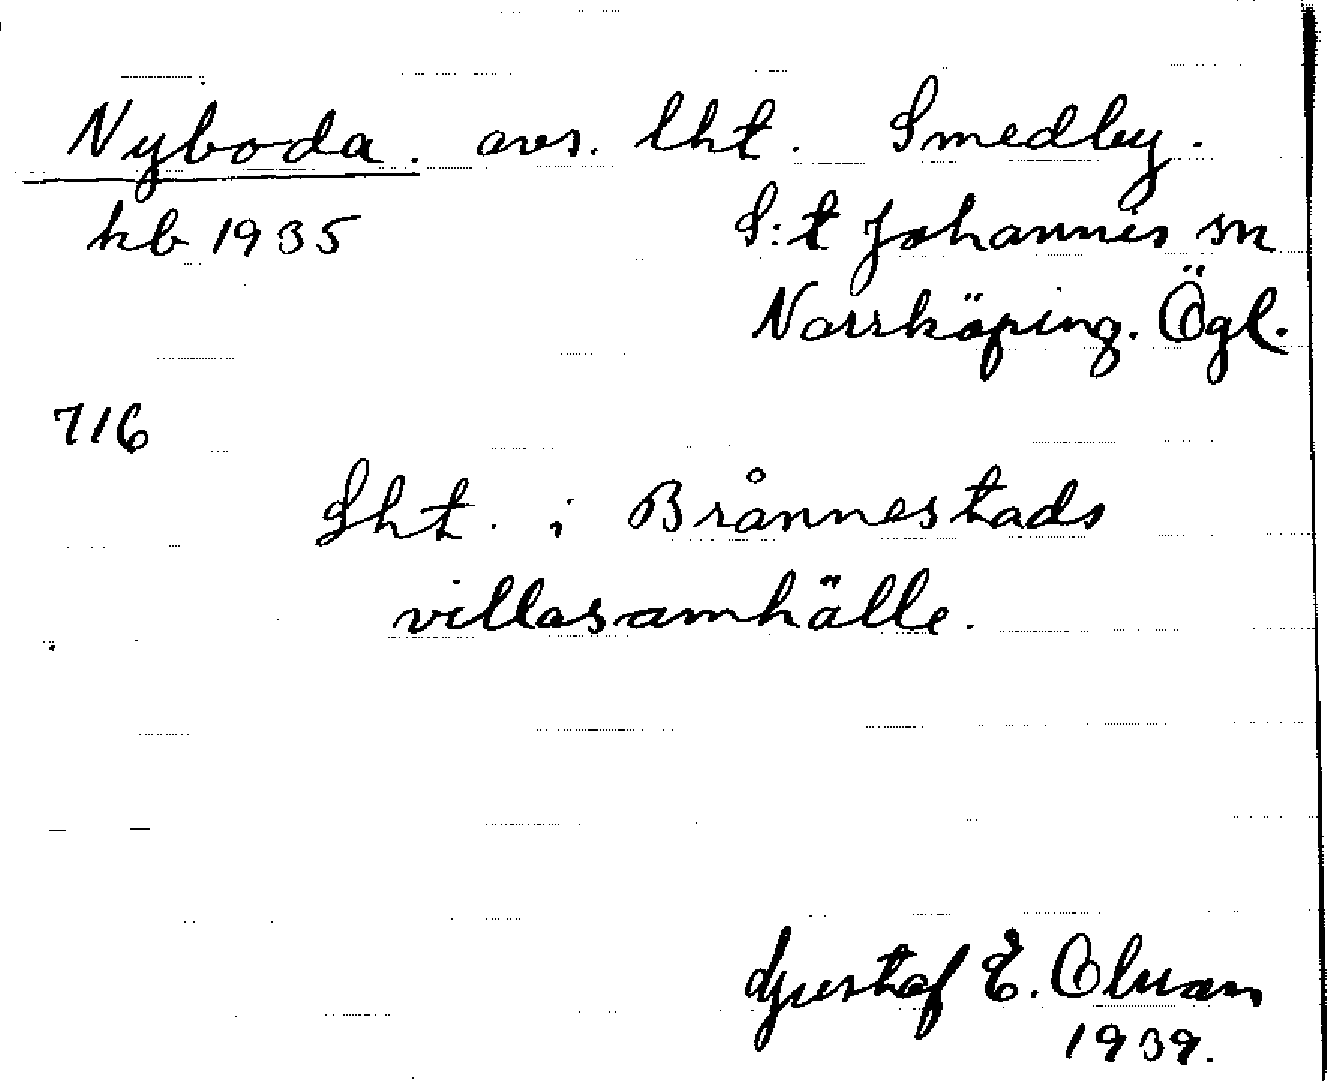 Nyboda. avs. lht. Smedby.
kb 1935 S:t Johannis sn
Norrköping. Ögl.
716
Lht. i Brånnestads
villasamhälle.
Gustaf E. Olsson
1939.